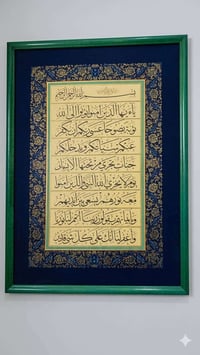 بسم الله الرحمن الرحيم
يا أيها الذين آمنوا توبوا إلى الله
توبة نصوحا عسى ربكم أن يكفر
عنكم سيئاتكم ويدخلكم
جنات تجري من تحتها الأنهار
يوم لا يخزي الله النبي والذين آمنوا
معه نورهم يسعى بين أيديهم
وبأيمانهم يقولون ربنا أتمم لنا نورنا
واغفر لنا إنك على كل شيء قدير